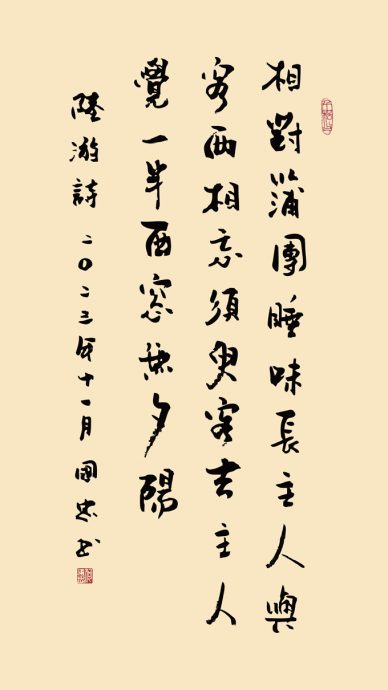 相對蒲團睡味長主人與
客兩相忘須臾客去主人
覺一半西窗無夕陽
陸游詩 二〇二三年十一月 國忠書